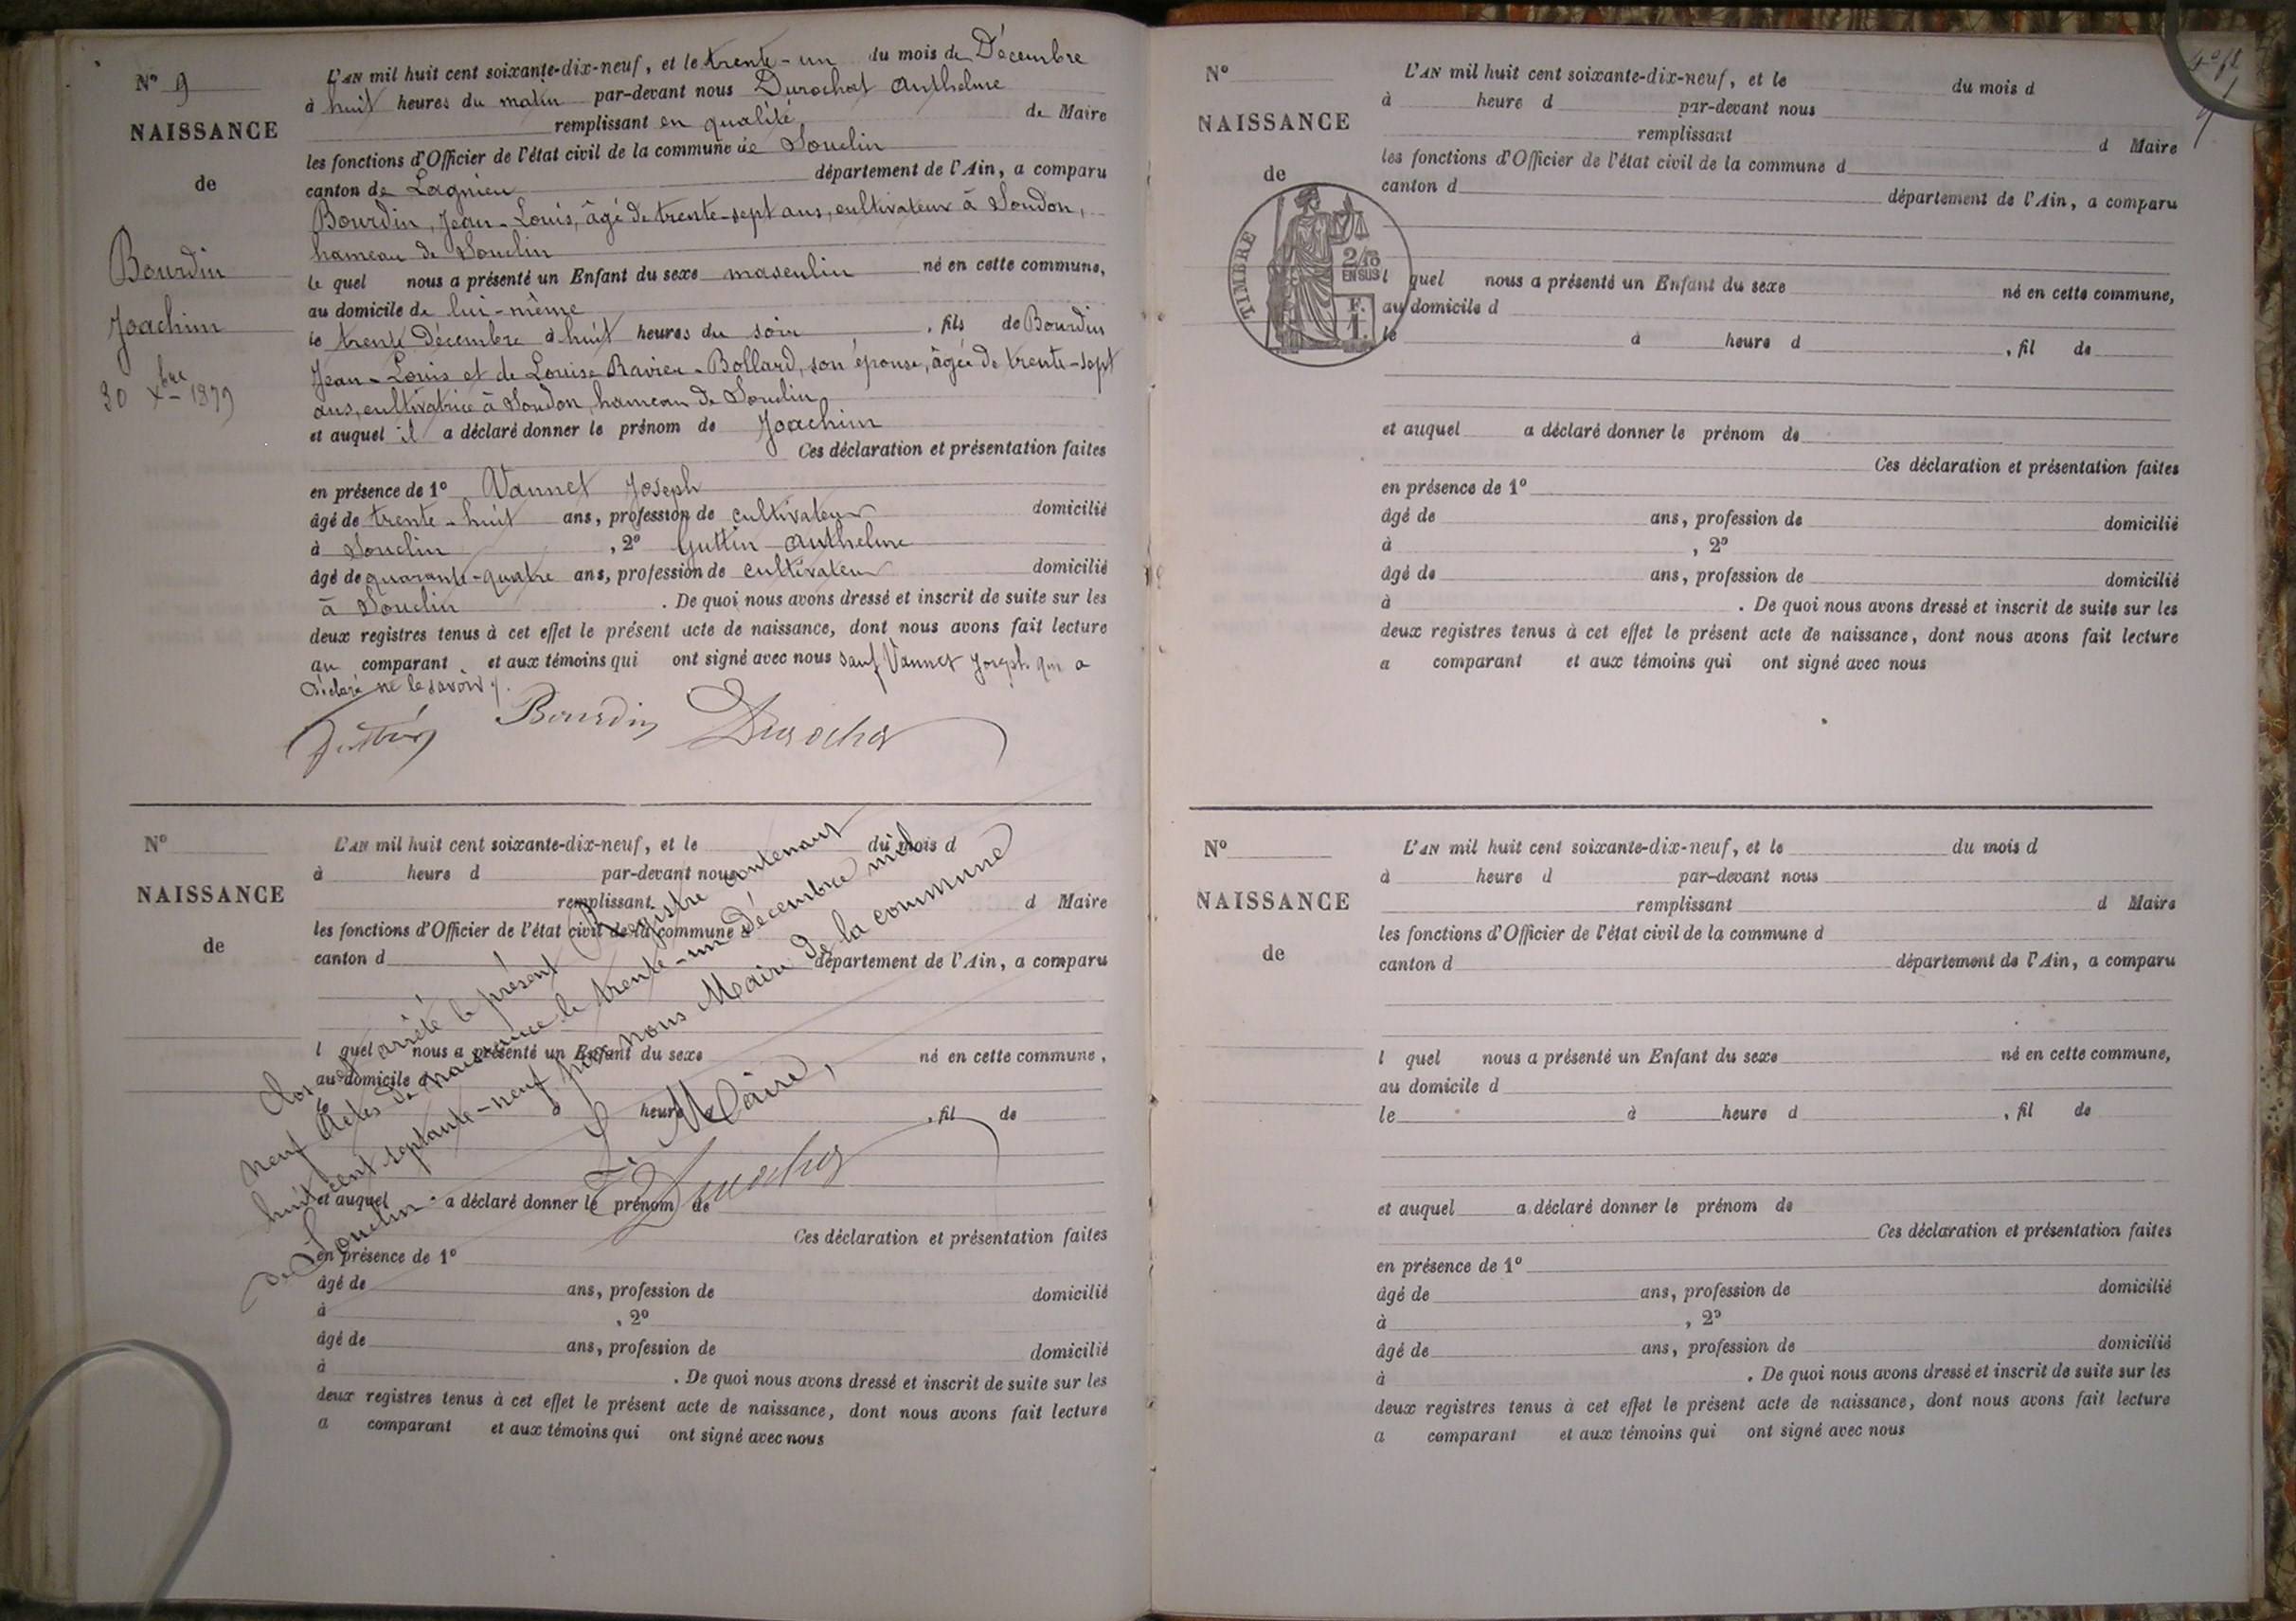 N° 9
NAISSANCE
de
Bourdin
Joachim
30 Xbre 1879
L'AN mil huit cent soixante-dix-neuf, et le trente-un du mois de Décembre
à huit heures du matin par-devant nous Durochat Anthelme
remplissant en qualité de Maire
les fonctions d'Officier de l'état civil de la commune de Souclin
canton de Lagnieu département de l'Ain, a comparu
Bourdin, Jean-Louis, âgé de trente-sept ans, cultivateur à Soudon,
hameau de Souclin
le quel nous a présenté un Enfant du sexe masculin né en cette commune,
au domicile de lui-même
le trente Décembre à huit heures du soir, fils de Bourdin
Jean-Louis et de Louise Ravier-Bollard, son épouse, âgée de trente-sept
ans, cultivatrice à Soudon, hameau de Souclin
et auquel il a déclaré donner le prénom de Joachim
Ces déclaration et présentation faites
en présence de 1° Vannet Joseph
âgé de trente-huit ans, profession de cultivateur domicilié
à Souclin, 2° Guttin Anthelme
âgé de quarante-quatre ans, profession de cultivateur domicilié
à Souclin. De quoi nous avons dressé et inscrit de suite sur les
deux registres tenus à cet effet le présent acte de naissance, dont nous avons fait lecture
au comparant et aux témoins qui ont signé avec nous sauf Vannet Joseph qui a
déclaré ne le savoir.
Guttin Bourdin Durochat
N°
NAISSANCE
de
L'AN mil huit cent soixante-dix-neuf, et le du mois d
à heure d par-devant nous
remplissant d Maire
les fonctions d'Officier de l'état civil de la commune d
canton d département de l'Ain, a comparu
l quel nous a présenté un Enfant du sexe né en cette commune,
au domicile d
le à heure d , fil de
et auquel a déclaré donner le prénom de
Ces déclaration et présentation faites
en présence de 1°
âgé de ans, profession de domicilié
à , 2°
âgé de ans, profession de domicilié
à . De quoi nous avons dressé et inscrit de suite sur les
deux registres tenus à cet effet le présent acte de naissance, dont nous avons fait lecture
a comparant et aux témoins qui ont signé avec nous
Clos et arrêté le présent Registre contenant
neuf Actes de naissance le trente-un Décembre mil
huit cent septante-neuf par nous Maire de la commune
de Souclin
Le Maire,
Durochat
N°
NAISSANCE
de
TIMBRE
2/10
EN SUS
F.
1.
L'AN mil huit cent soixante-dix-neuf, et le du mois d
à heure d par-devant nous
remplissant d Maire
les fonctions d'Officier de l'état civil de la commune d
canton d département de l'Ain, a comparu
l quel nous a présenté un Enfant du sexe né en cette commune,
au domicile d
le à heure d , fil de
et auquel a déclaré donner le prénom de
Ces déclaration et présentation faites
en présence de 1°
âgé de ans, profession de domicilié
à , 2°
âgé de ans, profession de domicilié
à . De quoi nous avons dressé et inscrit de suite sur les
deux registres tenus à cet effet le présent acte de naissance, dont nous avons fait lecture
a comparant et aux témoins qui ont signé avec nous
N°
NAISSANCE
de
L'AN mil huit cent soixante-dix-neuf, et le du mois d
à heure d par-devant nous
remplissant d Maire
les fonctions d'Officier de l'état civil de la commune d
canton d département de l'Ain, a comparu
l quel nous a présenté un Enfant du sexe né en cette commune,
au domicile d
le à heure d , fil de
et auquel a déclaré donner le prénom de
Ces déclaration et présentation faites
en présence de 1°
âgé de ans, profession de domicilié
à , 2°
âgé de ans, profession de domicilié
à . De quoi nous avons dressé et inscrit de suite sur les
deux registres tenus à cet effet le présent acte de naissance, dont nous avons fait lecture
a comparant et aux témoins qui ont signé avec nous